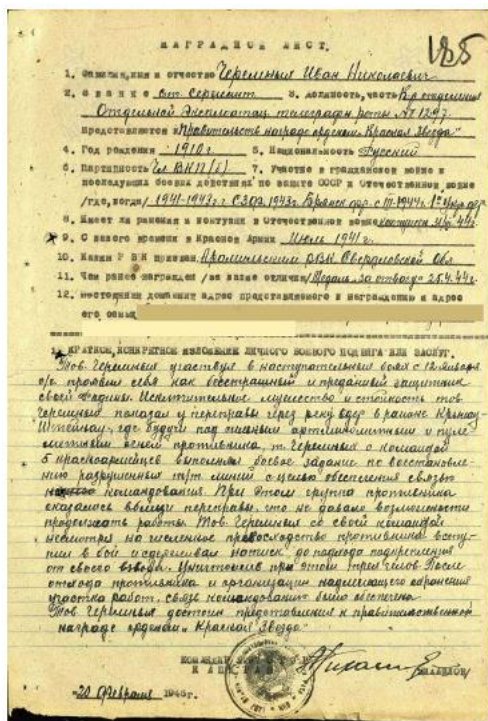 185
НАГРАДНОЙ ЛИСТ.
1. Фамилия, имя и отчество Черемных Иван Николаевич
2. Звание ст. Сержант 3. Должность, часть Ком. отделения
Отдельной Эксплоатац. телеграфн. роты № 1297
Представляется "Правительств. награде орденом "Красная Звезда"
4. Год рождения 1910г. 5. Национальность Русский
6. Партийность Чл ВКП(б) 7. Участие в гражданской войне и
последующих боевых действиях по защите СССР и Отечественной войне
/где, когда/ 1941-1943г. С.З.Ф. 1943г. Брянск. фр. с III-1944г. 1й Укр. фр.
8. Имеет ли ранения и контузии в Отечественной войне контузия 44г.
9. С какого времени в Красной Армии Июль 1941г.
10. Каким РВК призван РВК Свердловской Обл
11. Чем ранее награжден /за какие отличия/ Медаль "За отвагу" 25.4.44г.
12. Постоянный домашний адрес представляемого к награждению и адрес
его семьи
КРАТКОЕ, КОНКРЕТНОЕ ИЗЛОЖЕНИЕ ЛИЧНОГО БОЕВОГО ПОДВИГА ИЛИ ЗАСЛУГ.
Тов. Черемных участвуя в наступательных боях с 12 января
с/г. проявил себя как бесстрашный и преданный защитник
своей Родины. Исключительное мужество и стойкость тов.
Черемных показал у переправы через реку Одер в районе
Штейнау, где будучи под сильным артминометным и пуле-
метным огнем противника, т. Черемных с командой
5 красноармейцев выполнял боевое задание по восстановле-
нию разрушенных т/т линий с целью обеспечения связью
командования. При этом группа противника
оказалось вблизи переправы, что не давало возможности
продолжать работы. Тов. Черемных со своей командой
несмотря на численное превосходство противника всту-
пил в бой и сдерживал натиск до подхода подкрепления
от своего взвода. Уничтожив при этом трех гитлов. После
отхода противника и организации надлежащего охранения
участка работ, связь командованию была обеспечена.
Тов Черемных достоин представления к правительственной
награде орденом "Красная Звезда"
КОМАНДИР
КАПИТАН
"20 февраля 1945г.